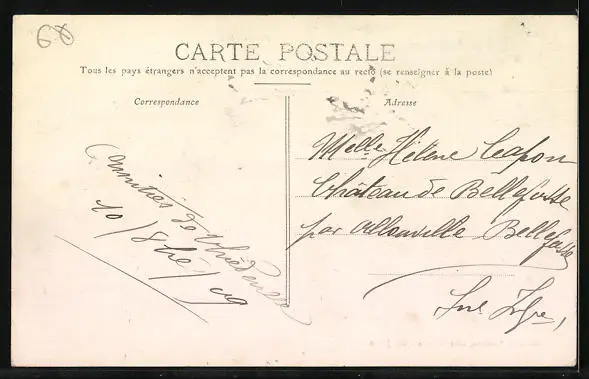 CARTE POSTALE
Tous les pays étrangers n'acceptent pas la correspondance au recto (se renseigner à la poste)
Correspondance
Adresse
Amitiés de
10/8bre/09
Melle Hélène
Château de Bellefosse
par Allouville Bellefosse
Sne Infre,